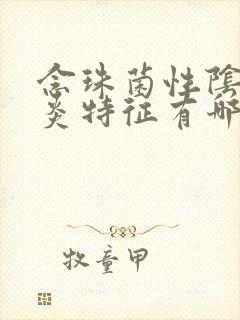 念珠菌性陰
炎特征有哪
牧童甲